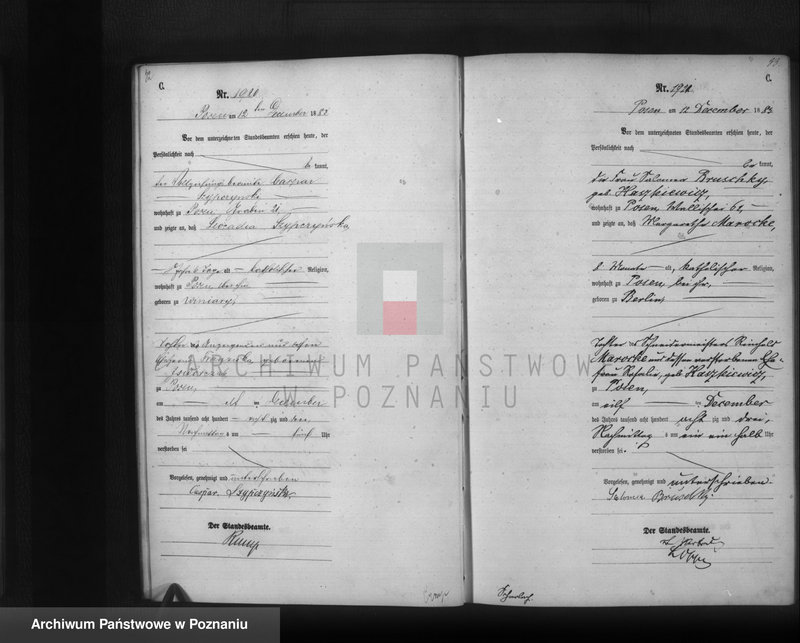 92
C.
Nr. 1920
Posen am 12 ten December 1883
Vor dem unterzeichneten Standesbeamten erschien heute, der
Persönlichkeit nach
be kannt,
Caspar
Szypczyński
wohnhaft zu Posen
und zeigte an, daß Leocadia Szypczyńska,
alt katholischer Religion,
wohnhaft zu Posen bei ihm
geboren zu Winiary,
Tochter des Anzeigenden und dessen
geborenen
zu Posen,
am elf ten December
des Jahres tausend acht hundert acht zig und drei,
Nachmittag s um fünf Uhr
verstorben sei
Vorgelesen, genehmigt und unterschrieben
Caspar Szypczyński
Der Standesbeamte.
Rump
93.
C.
Nr. 1921.
Posen am 12 December 1883
Vor dem unterzeichneten Standesbeamten erschien heute, der
Persönlichkeit nach
be kannt,
die Frau Salomea Bruschky
geb Haszkiewicz,
wohnhaft zu Posen, Wallischei
und zeigte an, daß Margarethe Marocke,
8 Monate alt, katholischer Religion,
wohnhaft zu Posen, bei ihr,
geboren zu Berlin,
Tochter des Schneidermeisters Reinhold
Marocke und dessen verstorbenen Ehe
frau geb Haszkiewicz,
zu Posen,
am eilf ten December
des Jahres tausend acht hundert acht zig und drei,
Nachmittag s um ein ein halb Uhr
verstorben sei.
Vorgelesen, genehmigt und unterschrieben.
Salomea Bruschky.
Der Standesbeamte.
ARCHIWUM PAŃSTWOWE
W POZNANIU
Archiwum Państwowe w Poznaniu